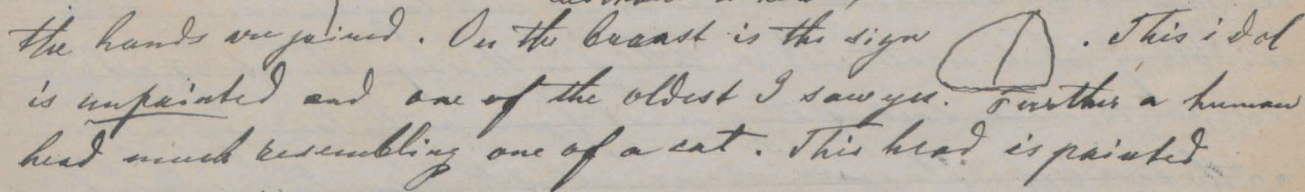 the hands are joined. On the breast is the sign . This idol
is unpainted and one of the oldest I saw yet. Further a human
head much resembling one of a cat. This head is painted